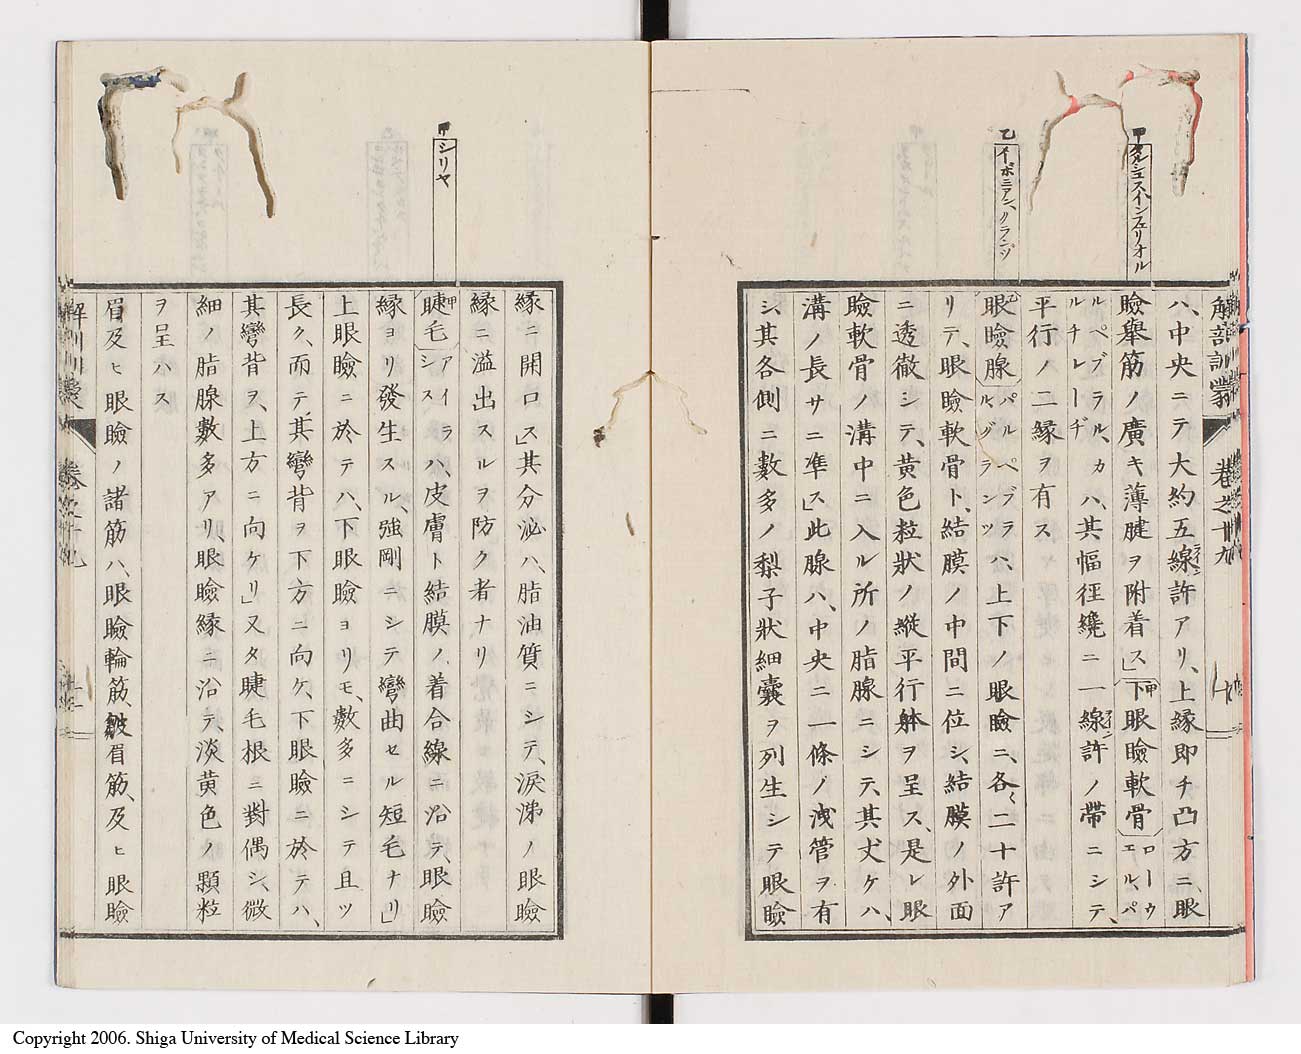 解剖訓蒙 巻之十九
甲 タルシュスインフェリオル
乙 イボミアン、グランツ
ハ、中央ニテ大約五線許アリ、上縁即チ凸方ニ、眼
瞼擧筋ノ廣キ薄腱ヲ附着ス」下眼瞼軟骨 ローウエル、パ
ルペブラル、カルチレーヂ ハ、其幅徑纔ニ一線許ノ帶ニシテ、
平行ノ二縁ヲ有ス
眼瞼腺 パルペブラル、グランツ ハ、上下ノ眼瞼ニ、各〻二十許ア
リテ、眼瞼軟骨ト、結膜ノ中間ニ位シ、結膜ノ外面
ニ透徹シテ、黄色粒狀ノ縱平行躰ヲ呈ス、是レ眼
瞼軟骨ノ溝中ニ入ル所ノ脂腺ニシテ、其丈ケハ、
溝ノ長サニ準ス」此腺ハ、中央ニ一條ノ洩管ヲ有
シ、其各側ニ數多ノ梨子狀細嚢ヲ列生シテ眼瞼
甲 シリヤ
縁ニ開口ス」其分泌ハ、脂油質ニシテ、涙涕ノ眼瞼
縁ニ溢出スルヲ防ク者ナリ
睫毛 アイラシス ハ、皮膚ト結膜ノ着合線ニ沿テ、眼瞼
縁ヨリ發生スル、強剛ニシテ彎曲セル短毛ナリ」
上眼瞼ニ於テハ、下眼瞼ヨリモ、數多ニシテ且ツ
長ク、而テ其彎背ヲ下方ニ向ケ、下眼瞼ニ於テハ、
其彎背ヲ、上方ニ向ケリ」又タ睫毛根ニ對偶シ、微
細ノ脂腺數多アリ、眼瞼縁ニ沿テ、淡黄色ノ顆粒
ヲ呈ハス
眉及ヒ眼瞼ノ諸筋ハ、眼瞼輪筋、皺眉筋、及ヒ眼瞼
解剖訓蒙 巻之十九
Copyright 2006. Shiga University of Medical Science Library